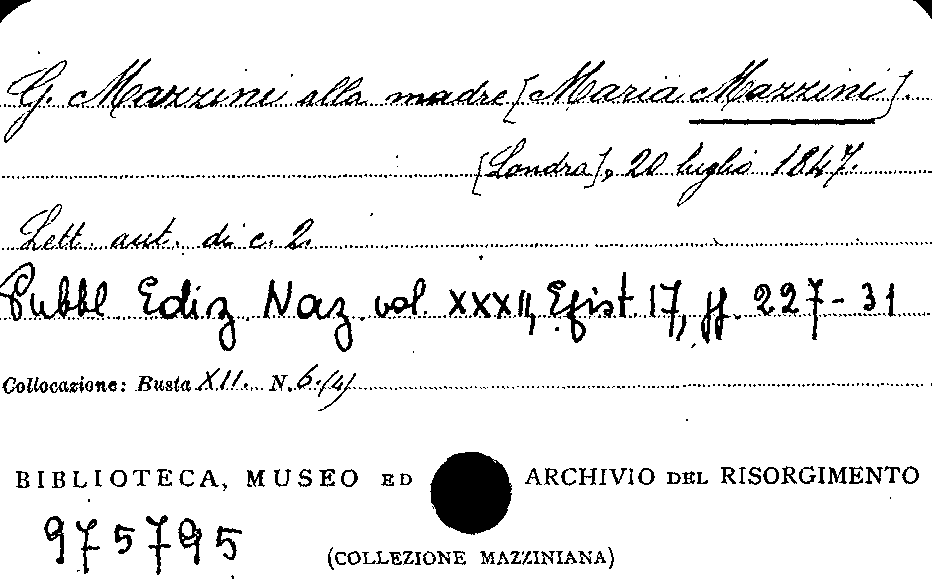 G. Mazzini alla madre [Maria Mazzini].
[Londra], 20 luglio 1847.
Lett. aut. di c. 2.
Pubbl. Ediz. Naz. vol. XXXII, Epist. 17, pp. 227-31
Collocazione: Busta XII. N. 6.(4)
BIBLIOTECA, MUSEO ED ARCHIVIO DEL RISORGIMENTO
975795
(COLLEZIONE MAZZINIANA)